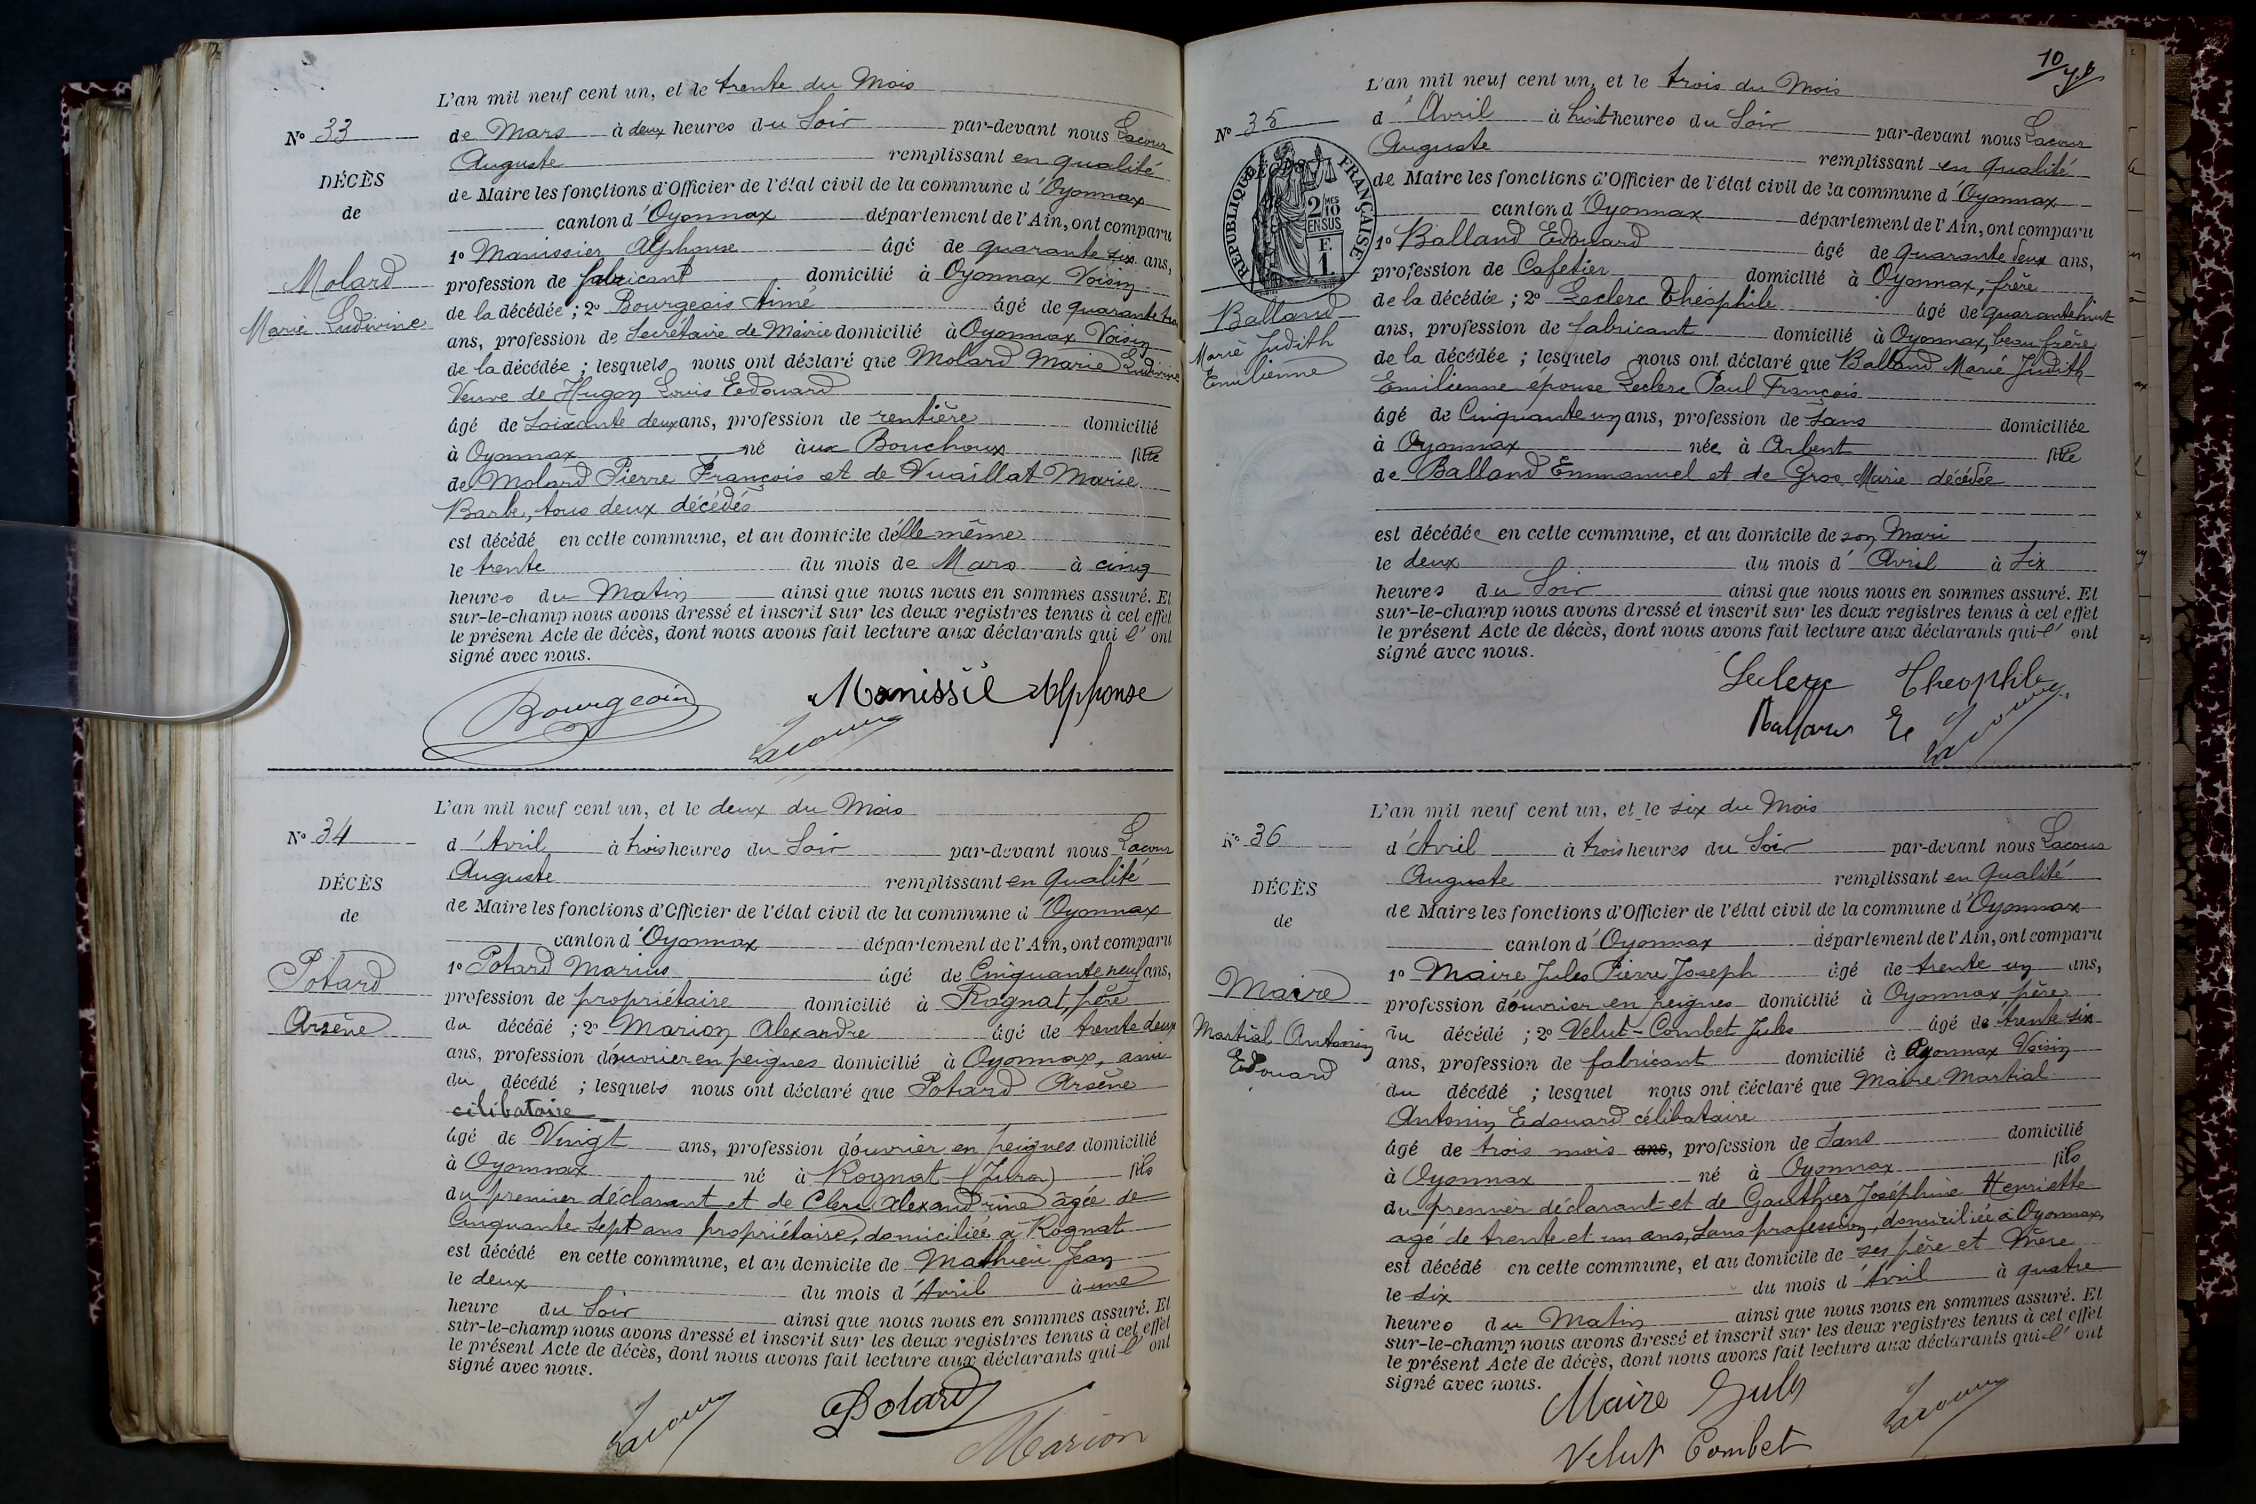 L'an mil neuf cent un, et le trente du Mois
N° 33
de Mars à deux heures du Soir par-devant nous Lacour
Auguste remplissant en qualité
DÉCÈS
de Maire les fonctions d'Officier de l'état civil de la commune d'Oyonnax
de
canton d'Oyonnax département de l'Ain, ont comparu
1° Manissier Alphonse âgé de quarante six ans,
Molard
profession de fabricant domicilié à Oyonnax Voisin
Marie Ludivine
de la décédée ; 2° Bourgeois Aimé âgé de quarante trois
ans, profession de Secrétaire de Mairie domicilié à Oyonnax Voisin
de la décédée ; lesquels nous ont déclaré que Molard Marie Ludivine
Veuve de Hugon Louis Edouard
âgé de Soixante deux ans, profession de rentière domicilié
à Oyonnax né aux Bouchoux fille
de Molard Pierre François et de Vuaillat Marie
Barbe, tous deux décédés
est décédé en cette commune, et au domicile d'elle même
le trente du mois de Mars à cinq
heures du Matin ainsi que nous nous en sommes assuré. Et
sur-le-champ nous avons dressé et inscrit sur les deux registres tenus à cet effet
le présent Acte de décès, dont nous avons fait lecture aux déclarants qui l'ont
signé avec nous.
Bourgeois Manissié Alphonse
Lacour
L'an mil neuf cent un, et le deux du Mois
N° 34
d'Avril à trois heures du Soir par-devant nous Lacour
Auguste remplissant en qualité
DÉCÈS
de Maire les fonctions d'Officier de l'état civil de la commune d'Oyonnax
de
canton d'Oyonnax département de l'Ain, ont comparu
1° Potard Marius âgé de Cinquante neuf ans,
Potard
profession de propriétaire domicilié à Rognat, père
Arsène
du décédé ; 2° Marion Alexandre âgé de trente deux
ans, profession d'ouvrier en peignes domicilié à Oyonnax, ami
du décédé ; lesquels nous ont déclaré que Potard Arsène
célibataire
âgé de Vingt ans, profession d'ouvrier en peignes domicilié
à Oyonnax né à Rognat (Jura) fils
du premier déclarant et de Clerc Alexandrine âgée de
Cinquante Sept ans propriétaire, domiciliée à Rognat
est décédé en cette commune, et au domicile de Mathieu Jean
le deux du mois d'Avril à une
heure du Soir ainsi que nous nous en sommes assuré. Et
sur-le-champ nous avons dressé et inscrit sur les deux registres tenus à cet effet
le présent Acte de décès, dont nous avons fait lecture aux déclarants qui l'ont
signé avec nous.
Lacour Potard
Marion
10
L'an mil neuf cent un, et le trois du Mois
N° 35
d'Avril à huit heures du Soir par-devant nous Lacour
Auguste remplissant en qualité
RÉPUBLIQUE FRANÇAISE
2/10 EN SUS
F. 1.
de Maire les fonctions d'Officier de l'état civil de la commune d'Oyonnax
canton d'Oyonnax département de l'Ain, ont comparu
1° Balland Edouard âgé de quarante deux ans,
profession de Cafetier domicilié à Oyonnax, frère
Balland
Marie Judith
Emilienne
de la décédée ; 2° Leclerc Théophile âgé de quarante huit
ans, profession de fabricant domicilié à Oyonnax, beau frère
de la décédée ; lesquels nous ont déclaré que Balland Marie Judith
Emilienne épouse Leclerc Paul François
âgé de Cinquante un ans, profession de Sans domiciliée
à Oyonnax née à Arbent fille
de Balland Emmanuel et de Gros Marie décédée
est décédée en cette commune, et au domicile de son Mari
le deux du mois d'Avril à Six
heures du Soir ainsi que nous nous en sommes assuré. Et
sur-le-champ nous avons dressé et inscrit sur les deux registres tenus à cet effet
le présent Acte de décès, dont nous avons fait lecture aux déclarants qui l'ont
signé avec nous.
Leclerc Théophile
Balland E Lacour
L'an mil neuf cent un, et le six du Mois
N° 36
d'Avril à trois heures du Soir par-devant nous Lacour
Auguste remplissant en qualité
DÉCÈS
de Maire les fonctions d'Officier de l'état civil de la commune d'Oyonnax
de
canton d'Oyonnax département de l'Ain, ont comparu
1° Maire Jules Pierre Joseph âgé de trente un ans,
Maire
profession d'ouvrier en peignes domicilié à Oyonnax père
Martial Antonin
Edouard
du décédé ; 2° Velut-Combet Jules âgé de trente six
ans, profession de fabricant domicilié à Oyonnax Voisin
du décédé ; lesquel nous ont déclaré que Maire Martial
Antonin Edouard célibataire
âgé de trois mois ans, profession de Sans domicilié
à Oyonnax né à Oyonnax fils
du premier déclarant et de Gauthier Joséphine Henriette
agé de trente et un ans, Sans profession, domiciliée à Oyonnax,
est décédé en cette commune, et au domicile de ses père et Mère
le six du mois d'Avril à quatre
heures du Matin ainsi que nous nous en sommes assuré. Et
sur-le-champ nous avons dressé et inscrit sur les deux registres tenus à cet effet
le présent Acte de décès, dont nous avons fait lecture aux déclarants qui l'ont
signé avec nous.
Maire Jules Lacour
Velut Combet